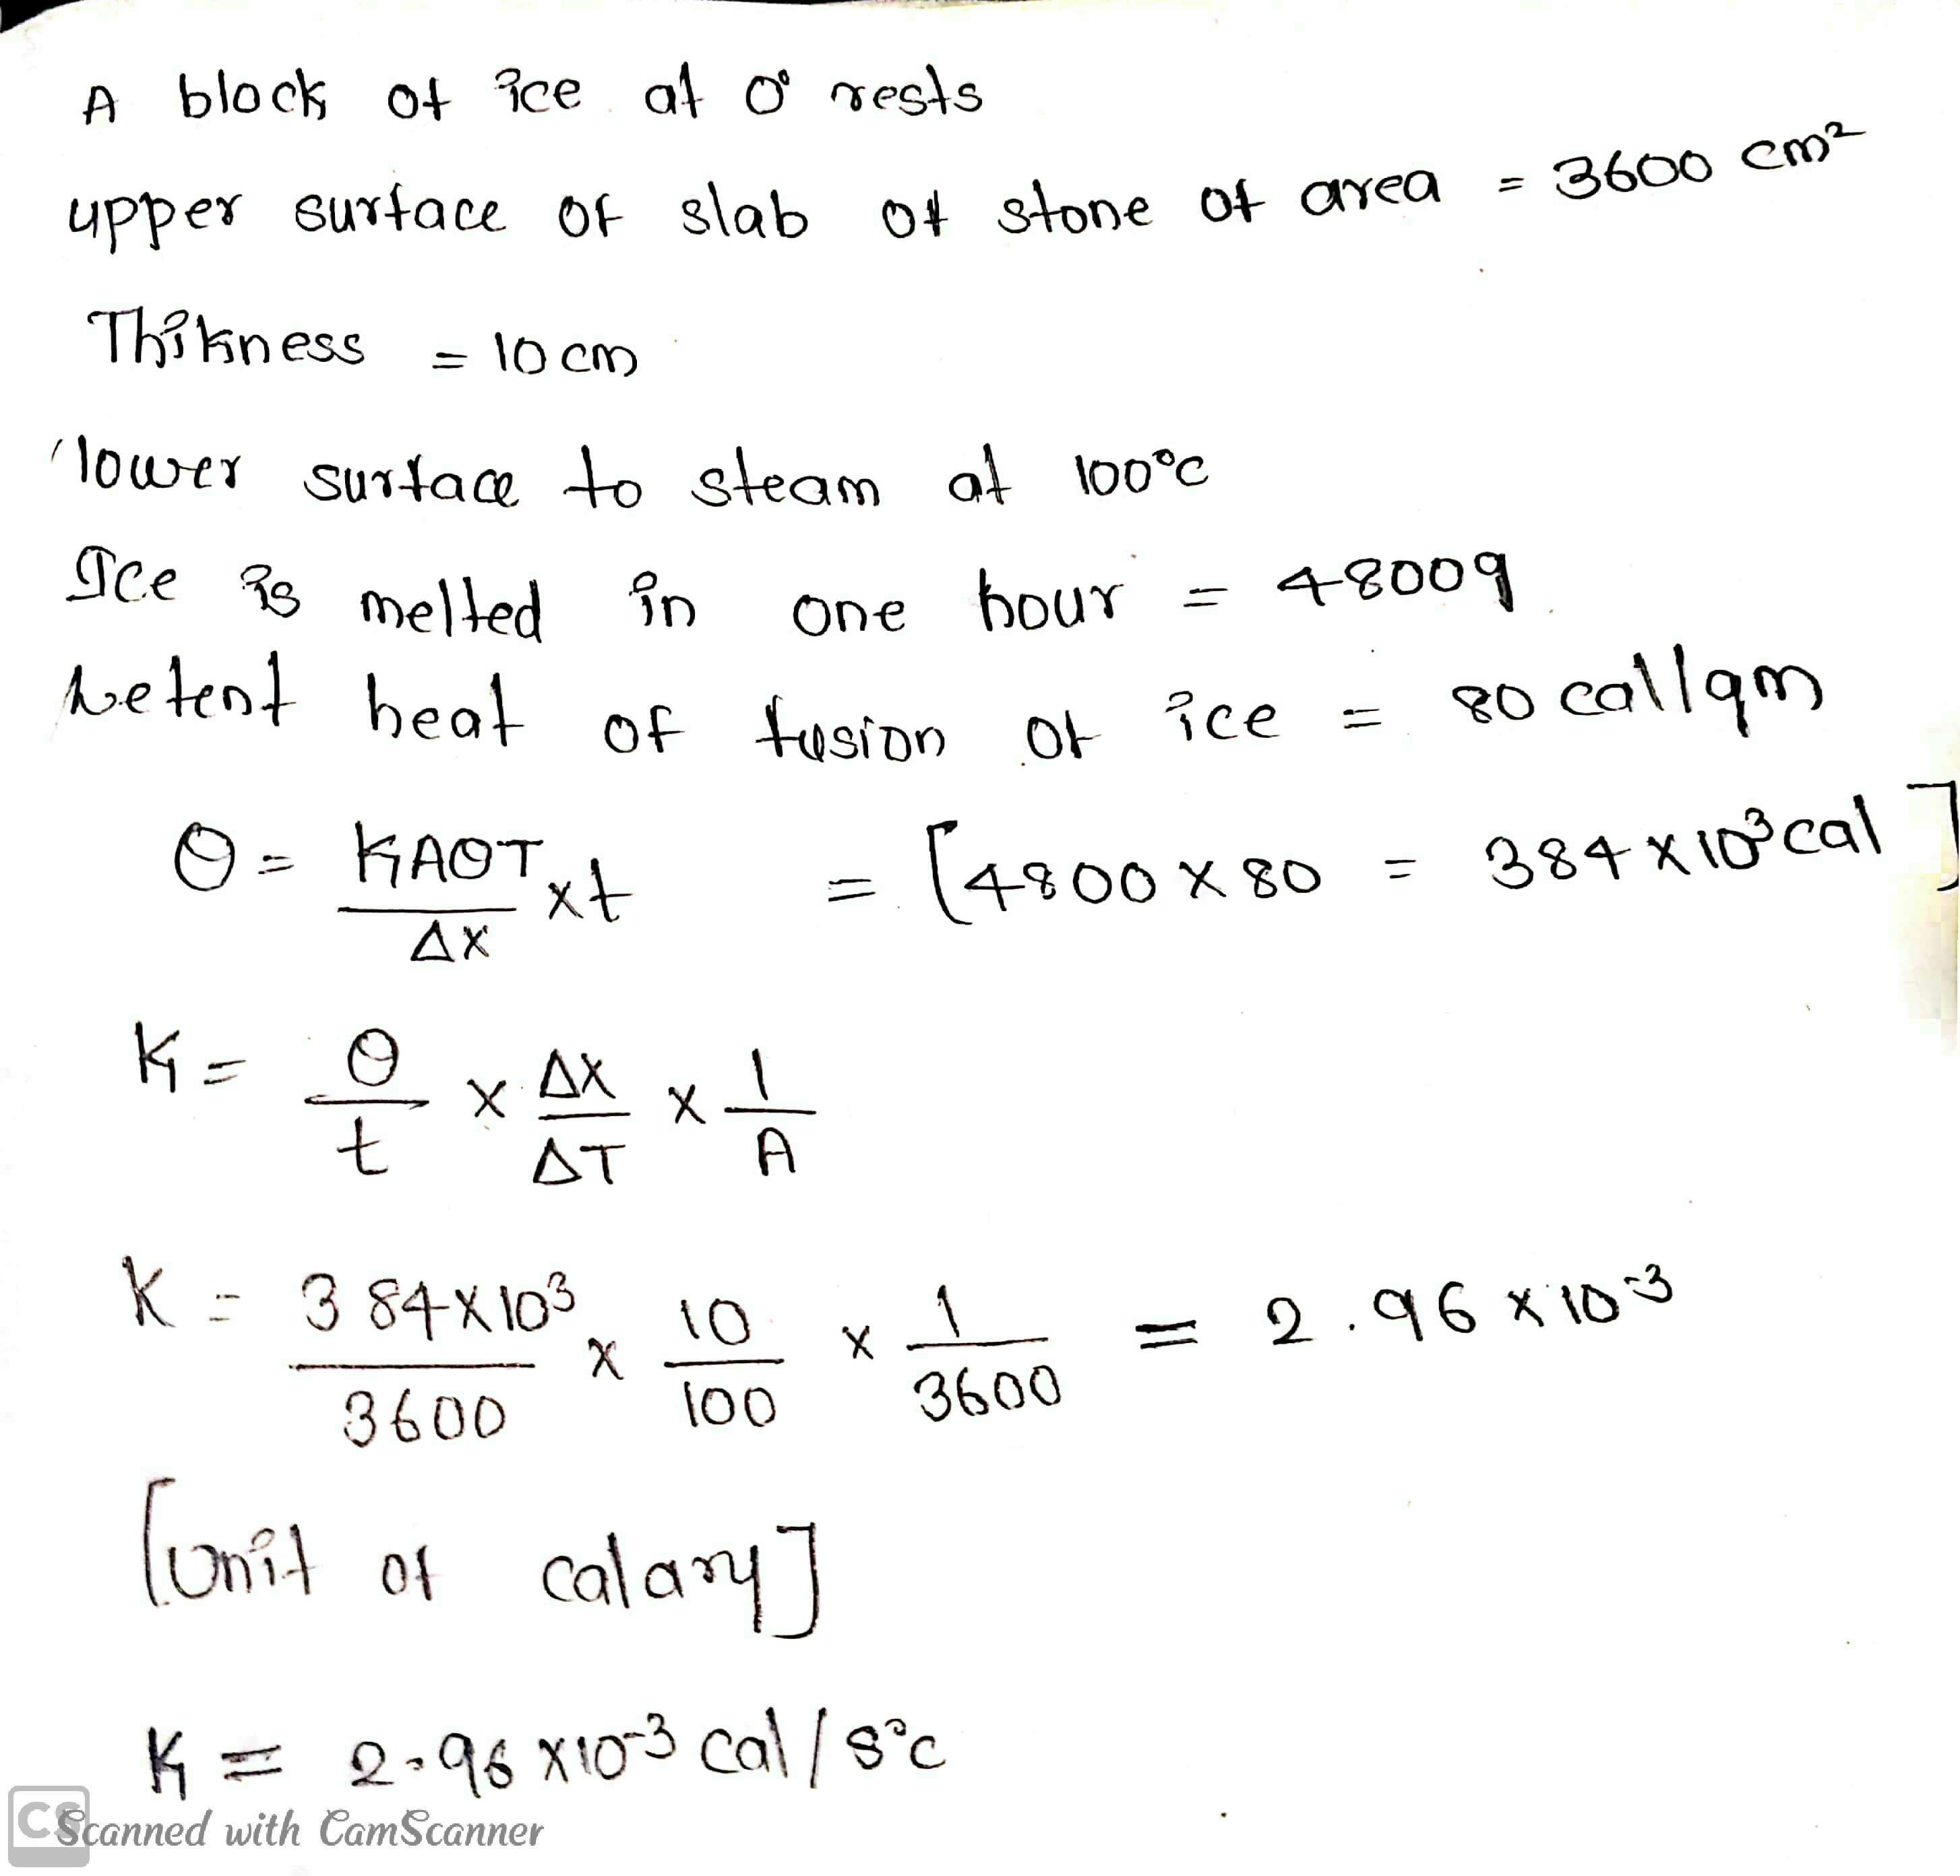 A block of ice at 0° rests
upper surface of slab of stone of area = 3600 cm²
Thikness = 10 cm
lower surface to steam at 100°c
Ice is melted in one hour = 4800g
Letent heat of fusion of ice = 80 cal/gm
Q = KAQT/ΔX x t = [4800 x 80 = 384 x 10³ cal]
K = Q/t x ΔX/ΔT x 1/A
K = 384 x 10³/3600 x 10/100 x 1/3600 = 2.96 x 10-3
[Unit of calary]
K = 2.96 x10-3 cal/s°c
CS Scanned with CamScanner